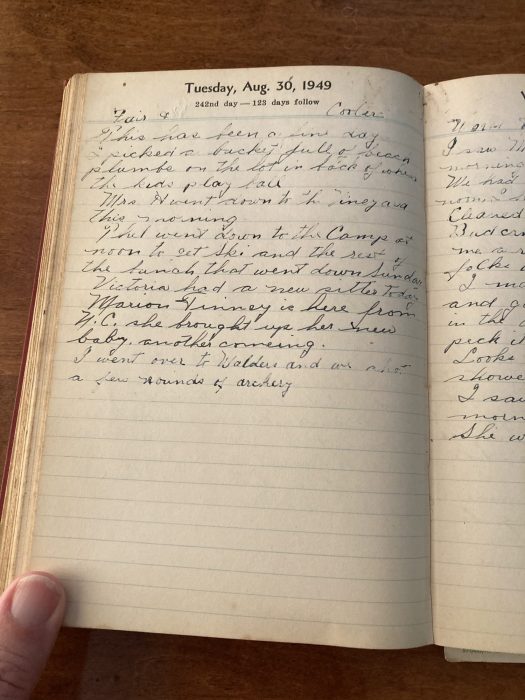 Tuesday, Aug. 30, 1949
242nd day — 123 days follow
Fair & Cooler
This has been a fine day
I picked a bucket full of
plumbs on the lot in back of where
the kids play ball
Mrs. H went down to the
this morning
Phil went down to the Camp at
noon to get Ski and the rest of
the bunch that went down Sunday
Victoria had a new sitter today
Marion Finney is here from
N.C. she brought up her new
baby. another comeing.
I went over to Walders and we shot
a few rounds of archery
I saw
morning
We had
Cleared
me a
folks
and
in the
pick it
Looks
showe
I saw
morn
She w